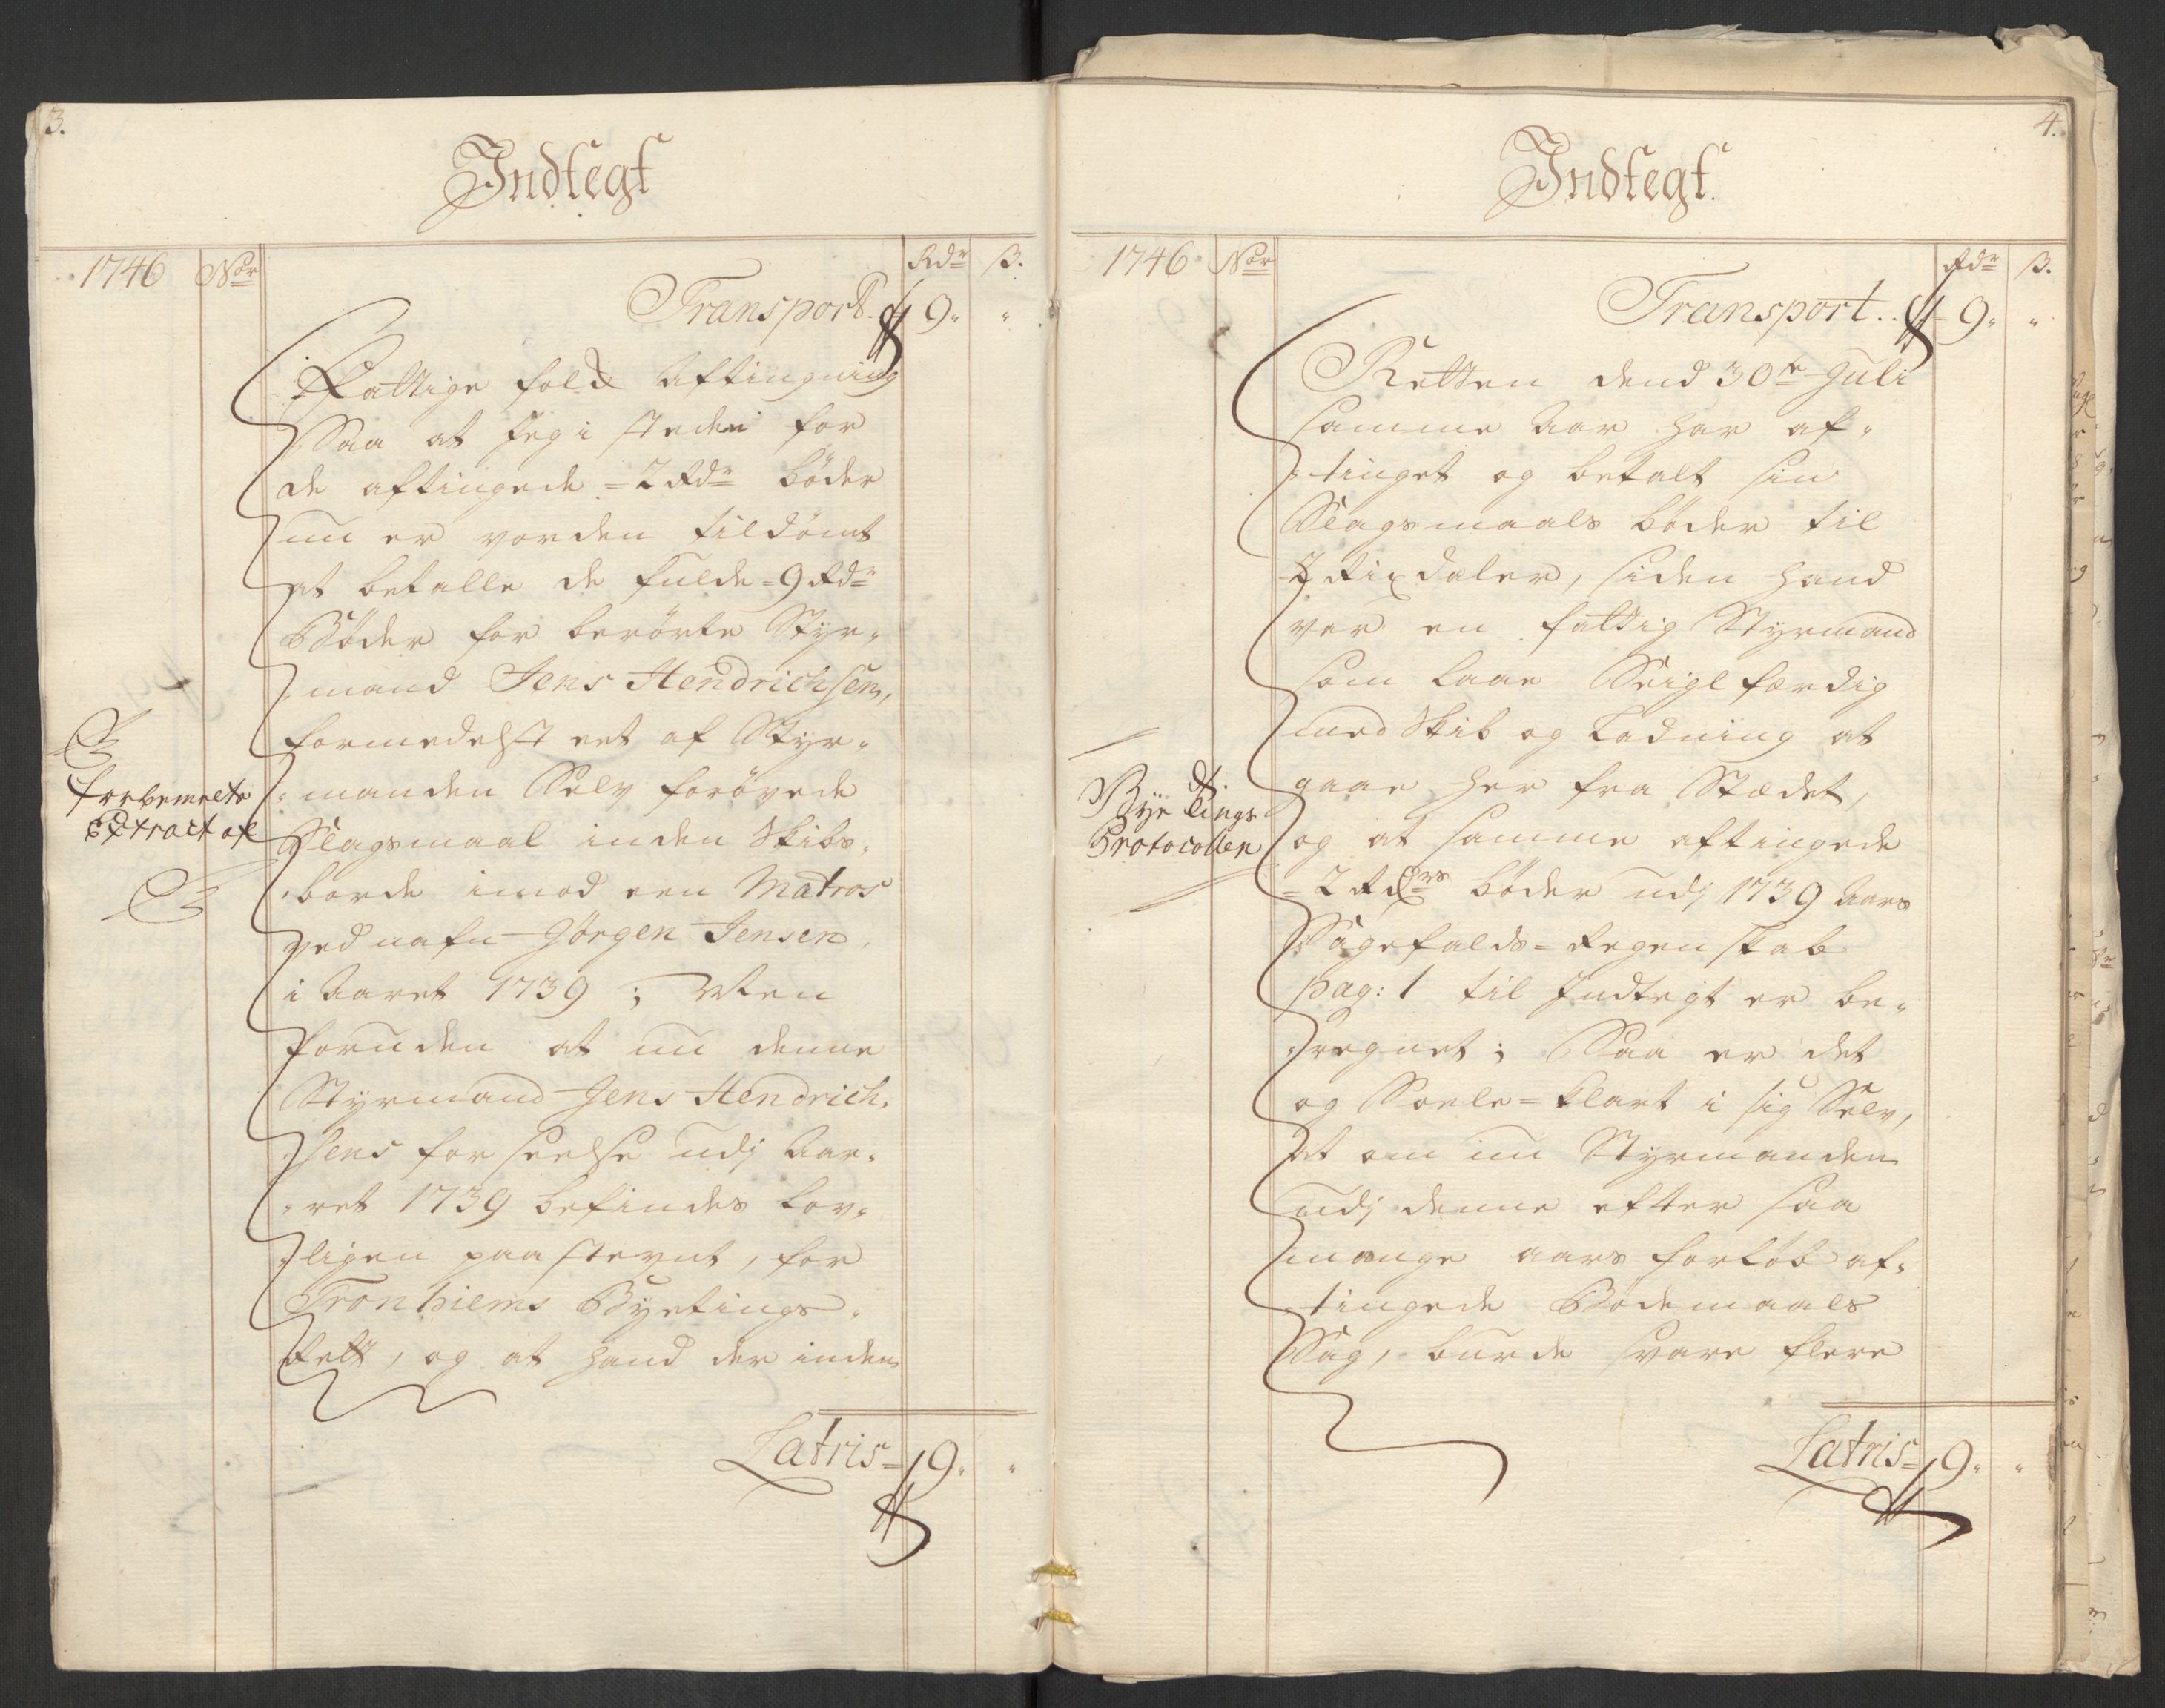 3.
Indtegt
1746 No:r Rdr ß.
Transport. 9. "
Fattige folk Aftingning
Saa at Jeg i steden for
de aftingede = 2 Rdr bøder
nu er vorden tildømt
at betalle de fulde = 9 Rdr
Bøder for berørte Styr=
mand Jens Hendrichsen,
formedelst eet af Styr=
manden Selv forøvede
Slagsmaal inden Skibs=
borde imod een Matros
ved nafn Jørgen Jensen,
i Aaret 1739; Men
foruden at nu denne
Styrmand Jens Hendrich=
sens forseelse udj Aar=
ret 1739 befindes Lov=
ligen paastevnt, for
Tronhiems Byetings=
Rett, og at hand der inden
forbemelte
Extract af
Latris = 9. "
4.
Indtegt.
1746 No:r Rdr ß.
Transport.. 9. "
Retten dend 30te Juli
samme Aar har af=
tinget og betalt sin
Slagsmaals bøder til
2 Rixdaler, siden hand
var en fattig Styrmand
som laae Seiglfærdig
med Skib og Ladning at
gaae her fra Stædet,
og at samme aftingede
= 2 Rdrs bøder udj 1739 Aars
Sagefalds = Regenskab
pag: 1 til Indtegt er be=
regnet; Saa er det
og Soele = klart i sig Selv,
at om nu Styrmanden
udj denne efter saa
mange aars forløb af=
tingede Bødemaals
Sag, burde svare flere
Bye tings
Protocollen
Latris = 9. "